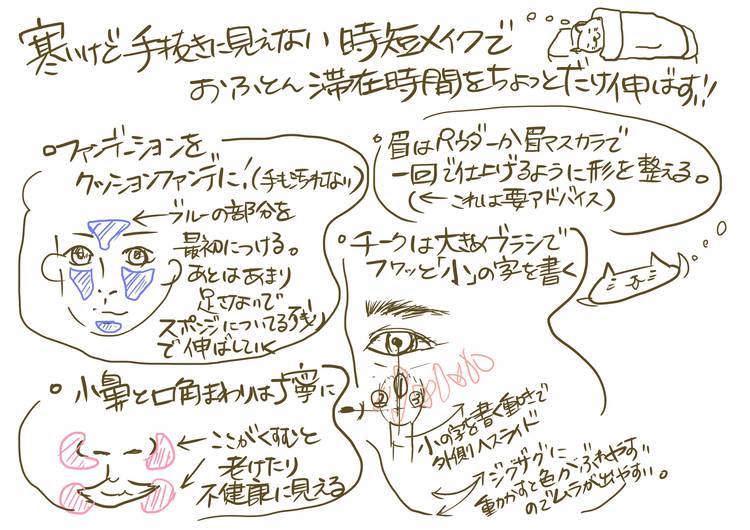 寒いけど手抜きに見えない時短メイクで
おふとん滞在時間をちょっとだけ伸ばす!!
ファンデーションを
クッションファンデに!(手も汚れない)
←ブルーの部分を
最初につける。
あとはあまり
足さないで
スポンジについてる残り
で伸ばしていく
眉はパウダーか眉マスカラで
一回で仕上げるように形を整える。
(←これは要アドバイス)
チークは大きめブラシで
フワッと「小」の字を書く
① ② ③
小の字を書く動きで
外側へスライド
ジグザグに
動かすと色がぶれやすい
のでムラが出やすい。
小鼻と口角まわりは丁寧に
←ここがくすむと
老けたり
不健康に見える